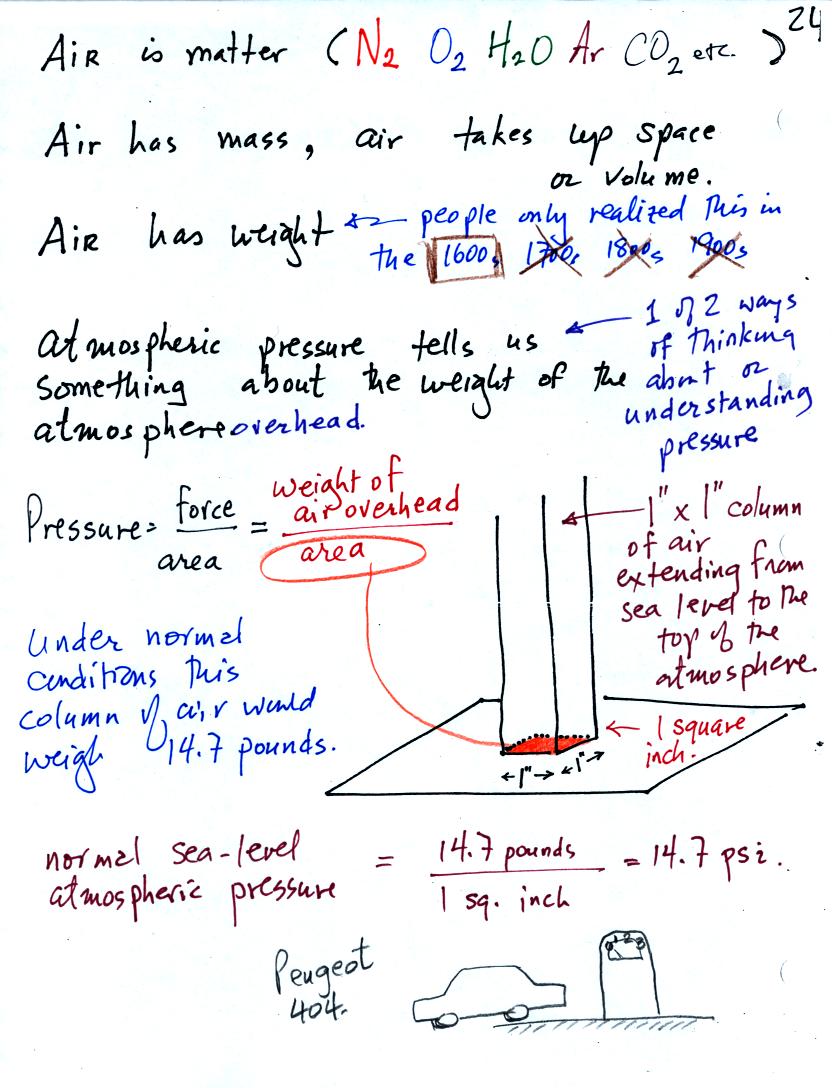 24
Air is matter (N2 O2 H2O Ar CO2 etc. )
Air has mass, air takes up space
or volume.
Air has weight ← people only realized this in
the 1600s 1700s 1800s 1900s
atmospheric pressure tells us
something about the weight of the
atmosphere overhead.
← 1 of 2 ways
of thinking
about or
understanding
pressure
Pressure = force / area = weight of air overhead / area
← 1" x 1" column
of air
extending from
sea level to the
top of the
atmosphere.
Under normal
conditions this
column of air would
weigh 14.7 pounds.
← 1 square
inch.
←1"→ ←1"→
normal sea-level
atmospheric pressure = 14.7 pounds / 1 sq. inch = 14.7 psi.
Peugeot
404.